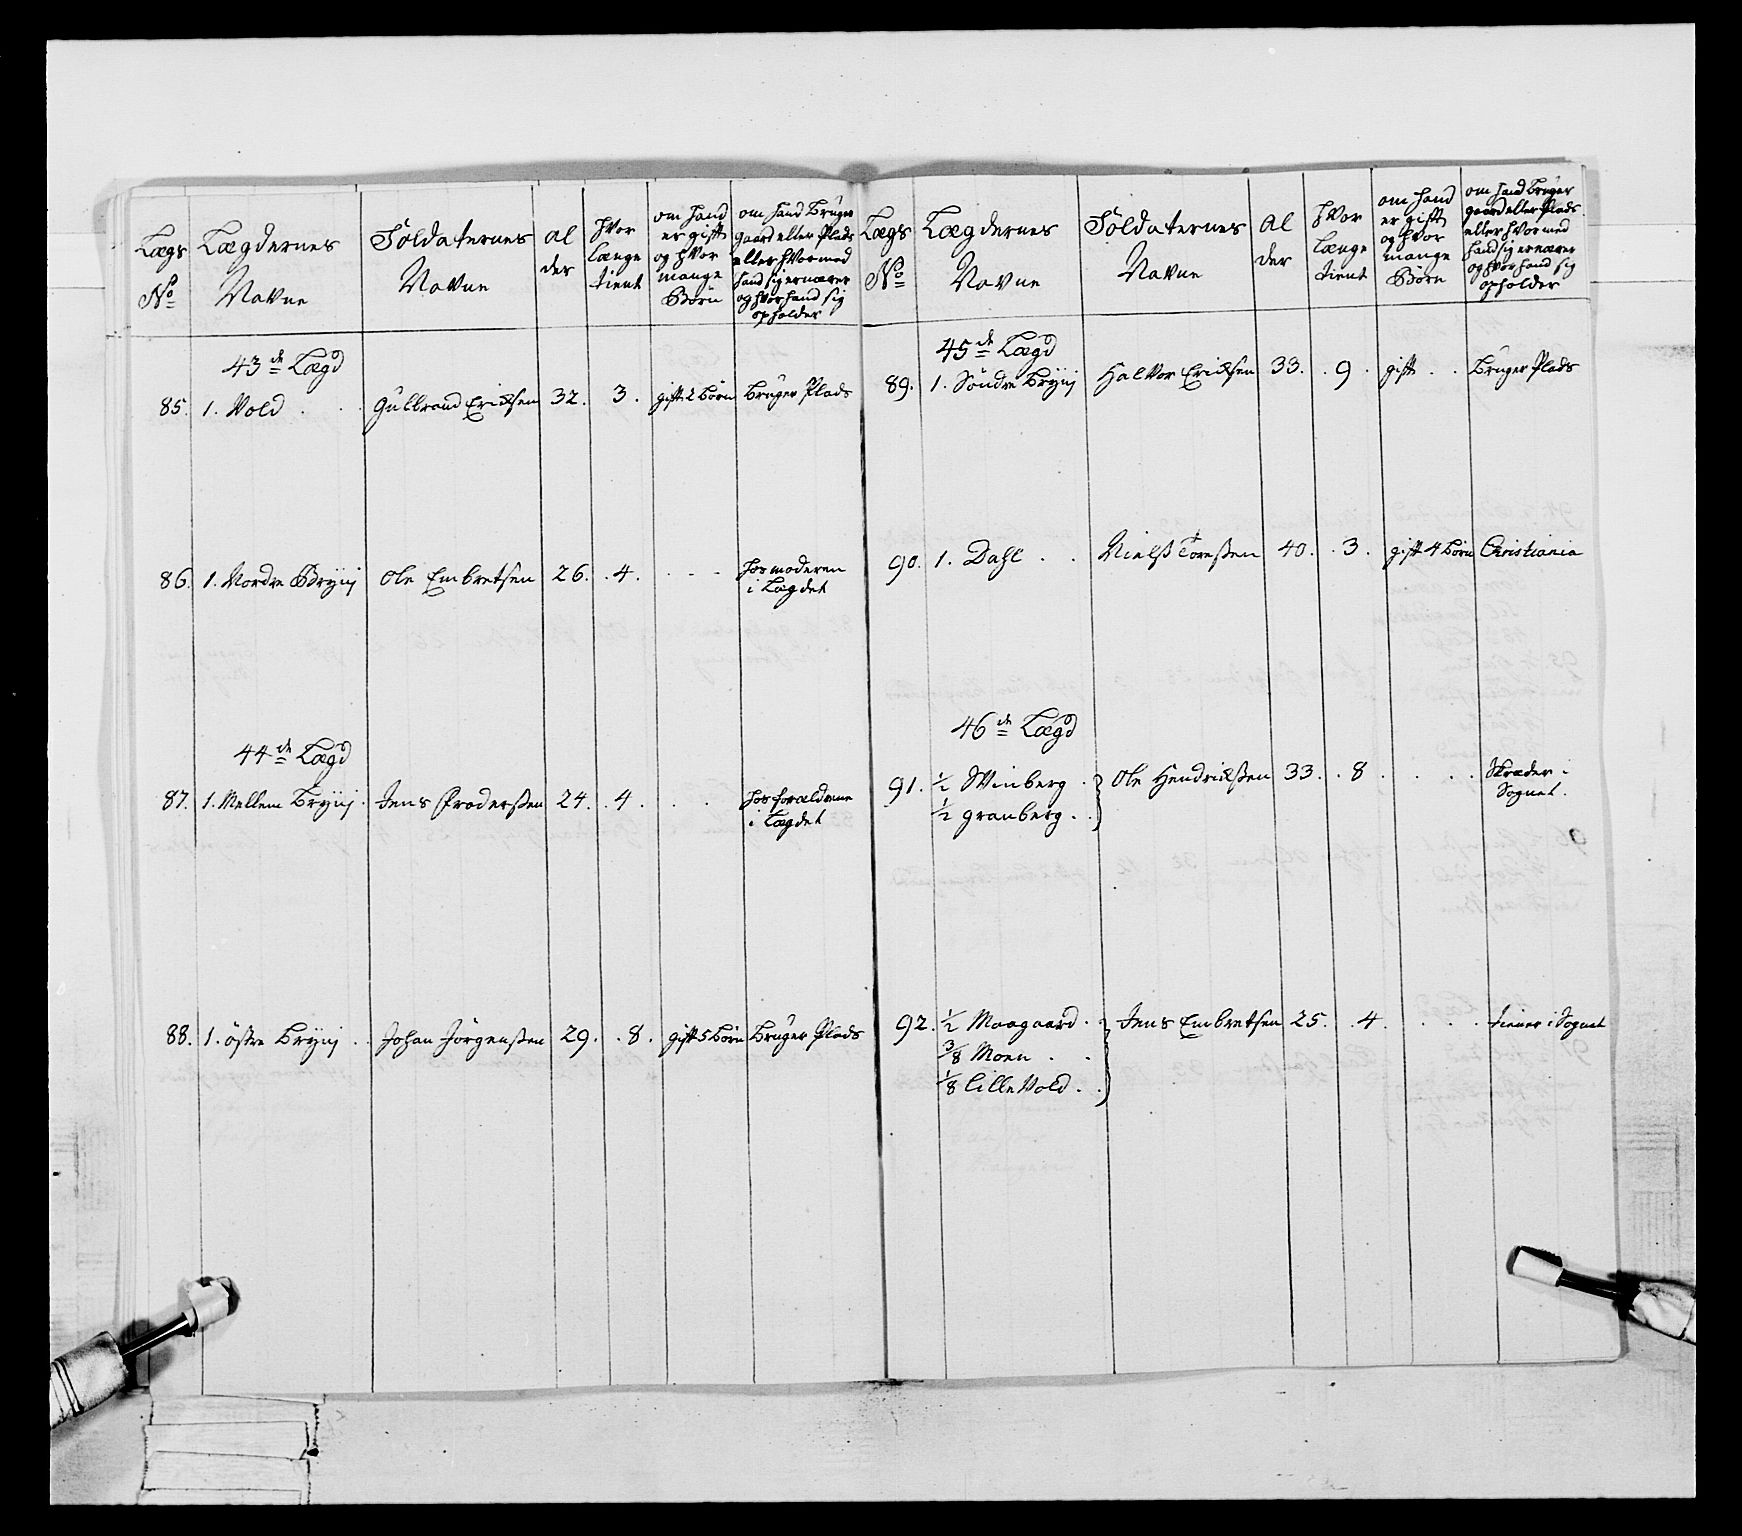 Lægs No
Lægdernes Navne
Soldaternes Navne
Al der
hvor længe tient
om hand er gift og hvor mange Børn
om hand Bruger gaard eller Plads eller hvormed hand sig ernærer og hvor hand sig opholder
43de Lægd
85. 1. Vold . . Gulbrand Ericksen 32. 3. gift 2 Børn Bruger Plads
86. 1. Nordre Brynj Ole Embretsen 26. . 4. . . . hos moderen
i Lægdet
44de Lægd
87. 1. Mellem Brynj . Jens Prederssen 24. . 4. . . hos forældrene
i Lægdet
88. 1. östre Brynj . . Johan Jörgenssen 29. . 8. gift 5 Börn Bruger Plads
Lægs No
Lægdernes Navne
Soldaternes Navne
Al der
hvor længe tient
om hand er gift og hvor mange Børn
om hand Bruger gaard eller Plads eller hvormed hand sig ernærer og hvor hand sig opholder
45de Lægd
89. 1. Söndre Brynj Halvor Ericksen 33. . 9. gift . . Bruger Plads
90. 1. Dahl . . Nielss Toressen 40. . 3. gift 4 Börn Christiania
46de Lægd
91. 1/2 Svinberg . Ole Hendrickssen 33. . 8 . . . . Skræder i
1/2 granberg . . Sognet.
92. 1/2 Maagaard . Jens Embretsen 25. . 4. . . . tiener i Sognet
3/8 Moen . .
1/8 Lille Vold . .